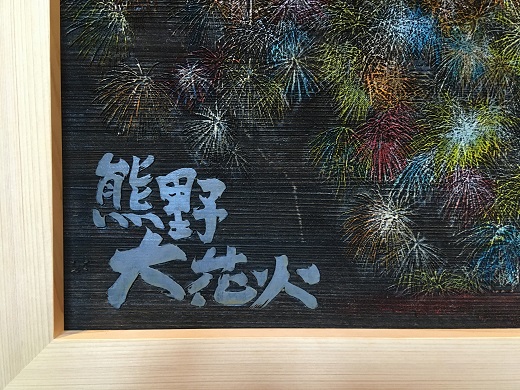 熊野
大花火